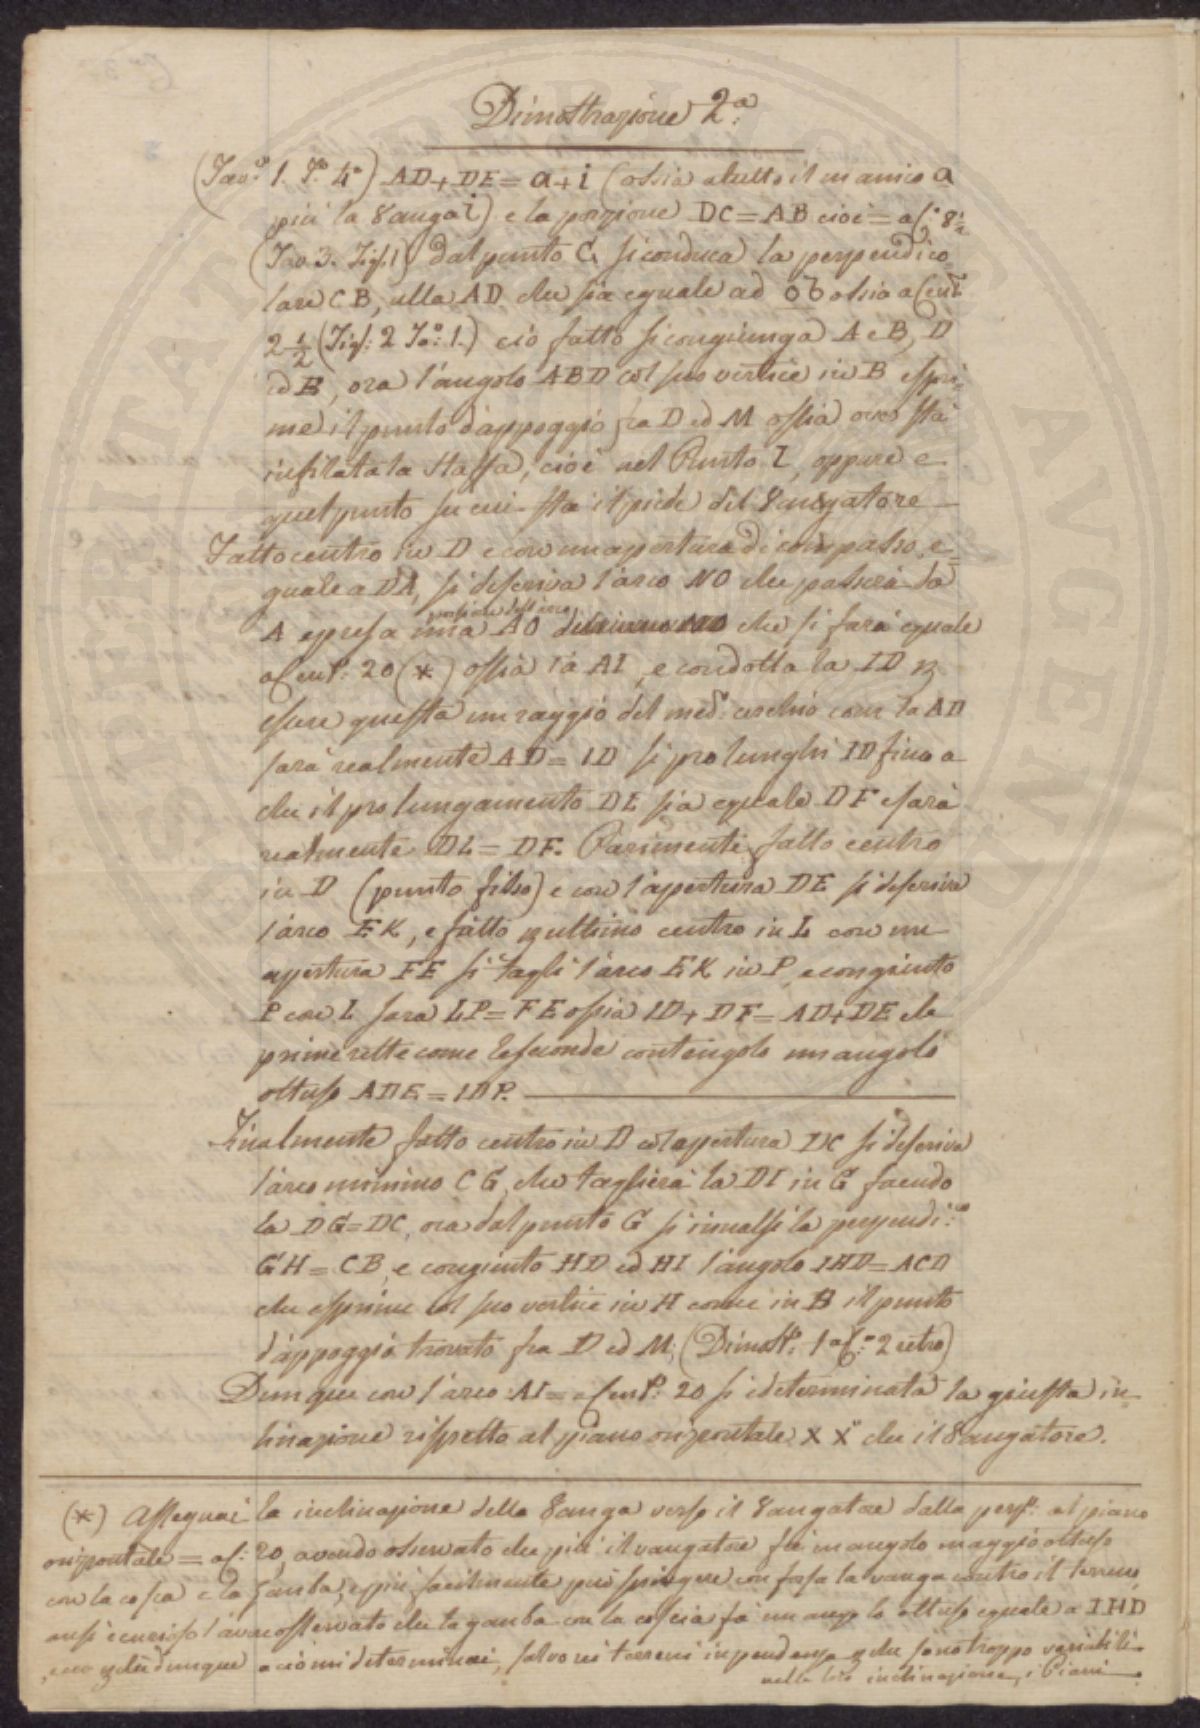 Dimostrazione 2.ª
(Tav.ª 1. F.ª 4ª) AD+DE = a+i (ossia a tutto il manico a
più la Vanga i) e la porzione DC = AB cioè = a C.i 8½
(Tav. 3. Fig. 1) dal punto C si conduca la perpendico
lare CB, alla AD che sia eguale ad ob ossia a Cent.i
2½ (Fig: 2 Ta: 1.) ciò fatto si congiunga A e B, D
ed B, ora l'angolo ABD col suo vertice in B espri=
me il punto d'appoggio fra D ed M ossia ove sta
infilata la staffa, cioè nel Punto I, oppure e
quel punto su cui sta il piede del Vangatore
Fatto centro in D e con un apertura di compasso e=
guale a DA, si descriva l'arco NO che passerà da
A e presa una porzione dell'arco AO che si farà eguale
a Cent.i 20 (*) ossia la AI, e condotta la ID p
essere questa un raggio del med.o cerchio con la AD
sarà realmente AD = ID si prolunghi ID fino a
che il prolungamento DL sia eguale DF e sarà
realmente DL = DF. Parimenti fatto centro
in D (punto fisso) e con l'apertura DE si descriva
l'arco EK, e fatto p ultimo centro in L con un
apertura FE si tagli l'arco EK in P, e congiunto
P con L sarà LP = FE ossia ID+DF = AD+DE le
prime rette come le seconde contengolo un angolo
ottuso ADE = IDP.
Finalmente fatto centro in D coll apertura DC si descriva
l'arco minimo CG, che taglierà la DI in G facendo
la DG=DC, ora dal punto G si innalsi la perpendi:re
GH = CB, e congiunto HD ed HI l'angolo IHD=ACD
che esprime col suo vertice in H come in B il punto
d'appoggio trovato fra D ed M; (Dimost.e 1 a C.a 2 retro)
Dunque con l'arco AI = a Cent.i 20 si è determinata la giusta in=
clinazione rispetto al piano orizontale X X' che il Vangatore.
(*) Assegnai la inclinazione della Vanga verso il Vangatore dalla perp.e al piano
orizontale = a C.i 20, avendo osservato che più il vangatore fa un angolo maggio ottuso
con la coscia e la gamba, e più facilmente può spingere con forsa la vanga contro il terreno,
ansi è curioso l'avere osservato che la gamba con la coscia fa un angolo ottuso eguale a IHD
ecco p che dunque a ciò mi determinai, salvo nei terreni in pendenza p che sono troppo variabili
nella loro inclinazione, i Piani